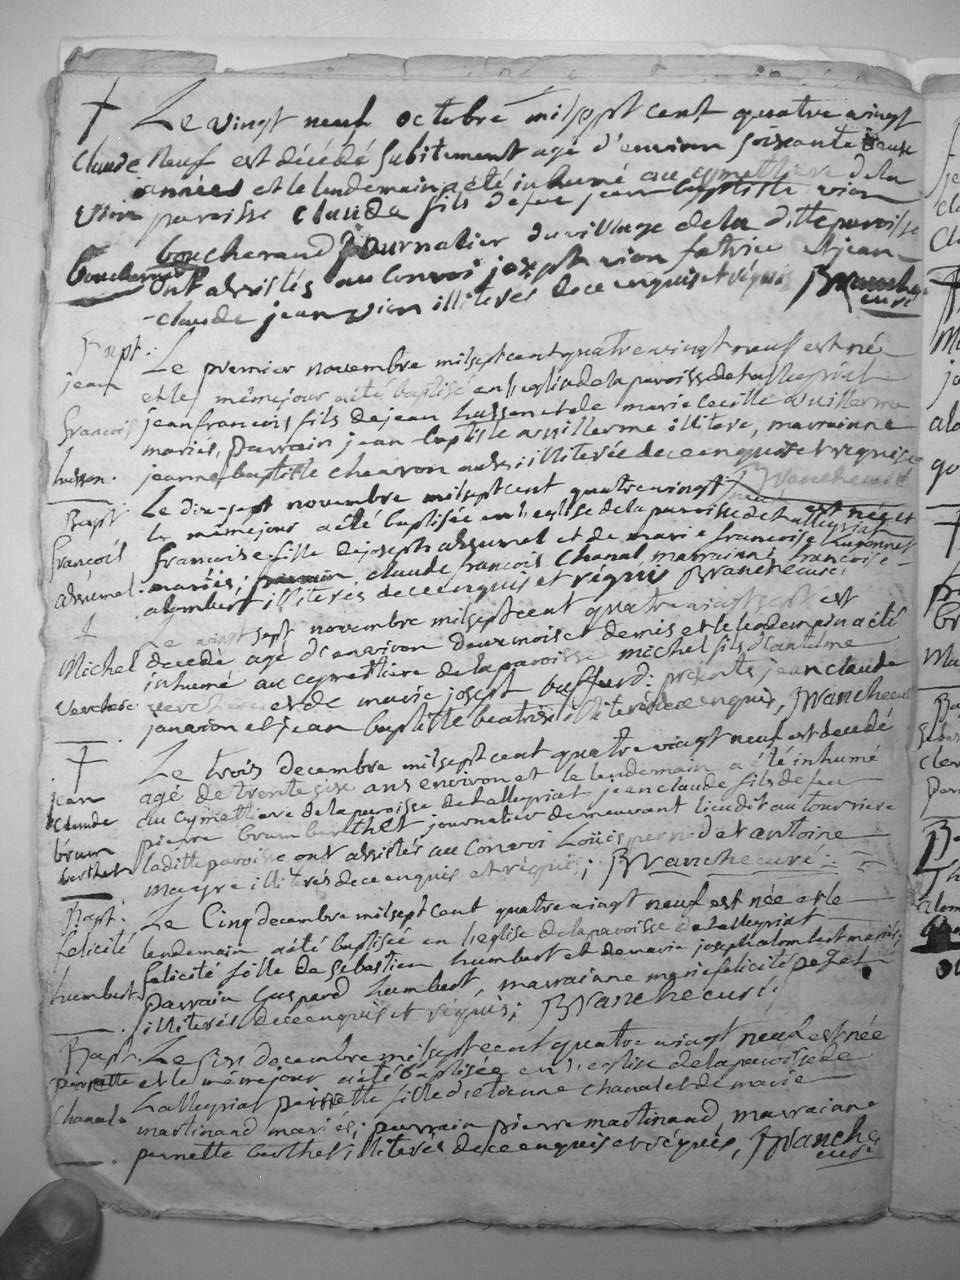 † Le vingt neuf octobre milsept cent quatre vingt
Claude neuf est décédé subitement agé d'environ soixante
années et le lendemain a été inhumé au cymettiere dela
vion paroisse claude fils defeu jean baptiste vion
boucherand journalier du village dela ditte paroisse
boucherand ont assistés au convoi joseph vion et jean
claude jean vion illiterés dece enquis et réquis Branche
curé
Bapt. Le premier novembre milsept cent quatre vingt neuf est né
jean et le mêmejour a été baptisé en l'eglise dela paroisse de talleyriat
françois jean françois fils de jean husson et de marie cecille vuillerme
mariés, parrain jean baptiste vuillerme illiteré, marraine
husson. jeanne baptiste chavon aussi illiterée dece enquise et réquise
Branche curé
Bapt Le dix-sept novembre milsept cent quatre vingt neuf est née et
le mêmejour a été baptisée en l'eglise dela paroisse de talleyriat
françois françoise fille de joseph assumel et de marie françoise
assumel. mariés; claude françois Chanal marrainne françoise
alombert illiterés dece enquis et réquis Branche curé.
† Le vingt sept novembre milsept cent quatre vingt neuf est
Michel decedé agé d'environ deux mois et demis et le lendemain a été
inhumé au cymettiere dela paroisse michel fils d'antoine
verchere verchere et de marie joseph buffard: présents jean claude
janvion et jean baptiste beatrix illiterés dece enquis, Branche curé
† Le trois decembre milsept cent quatre vingt neuf est decedé
jean agé de trente six ans environ et le lendemain a été inhumé
claude au cymettiere dela paroisse de talleyriat jean claude fils de feu
brun pierre brun berthet journalier demeurant lieudit au tourriere
berthet laditte paroisse ont assistés au convoi Loüis et antoine
mayre illiterés dece enquis et réquis; Branche curé.
Bapt. Le Cinq decembre milsept cent quatre vingt neuf est née et le
felicité lendemain a été baptisée en l'eglise dela paroisse de talleyriat
felicité fille de Sebastien humbert et de marie joseph alombert mariés,
humbert parrain Gaspard humbert, marraiane marie felicité pezet
illiterés dece enquis et réquis; Branche curé.
Bapt. Le Six decembre milsept cent quatre vingt neuf est née
pernette et le mêmejour a été baptisée en l'eglise dela paroisse de
talleyriat pernette fille d'etienne chanal et de marie
Chanal martinand mariés; parrain pierre martinand marraiane
pernette berthet illiterés dece enquis et réquis, Branche
curé